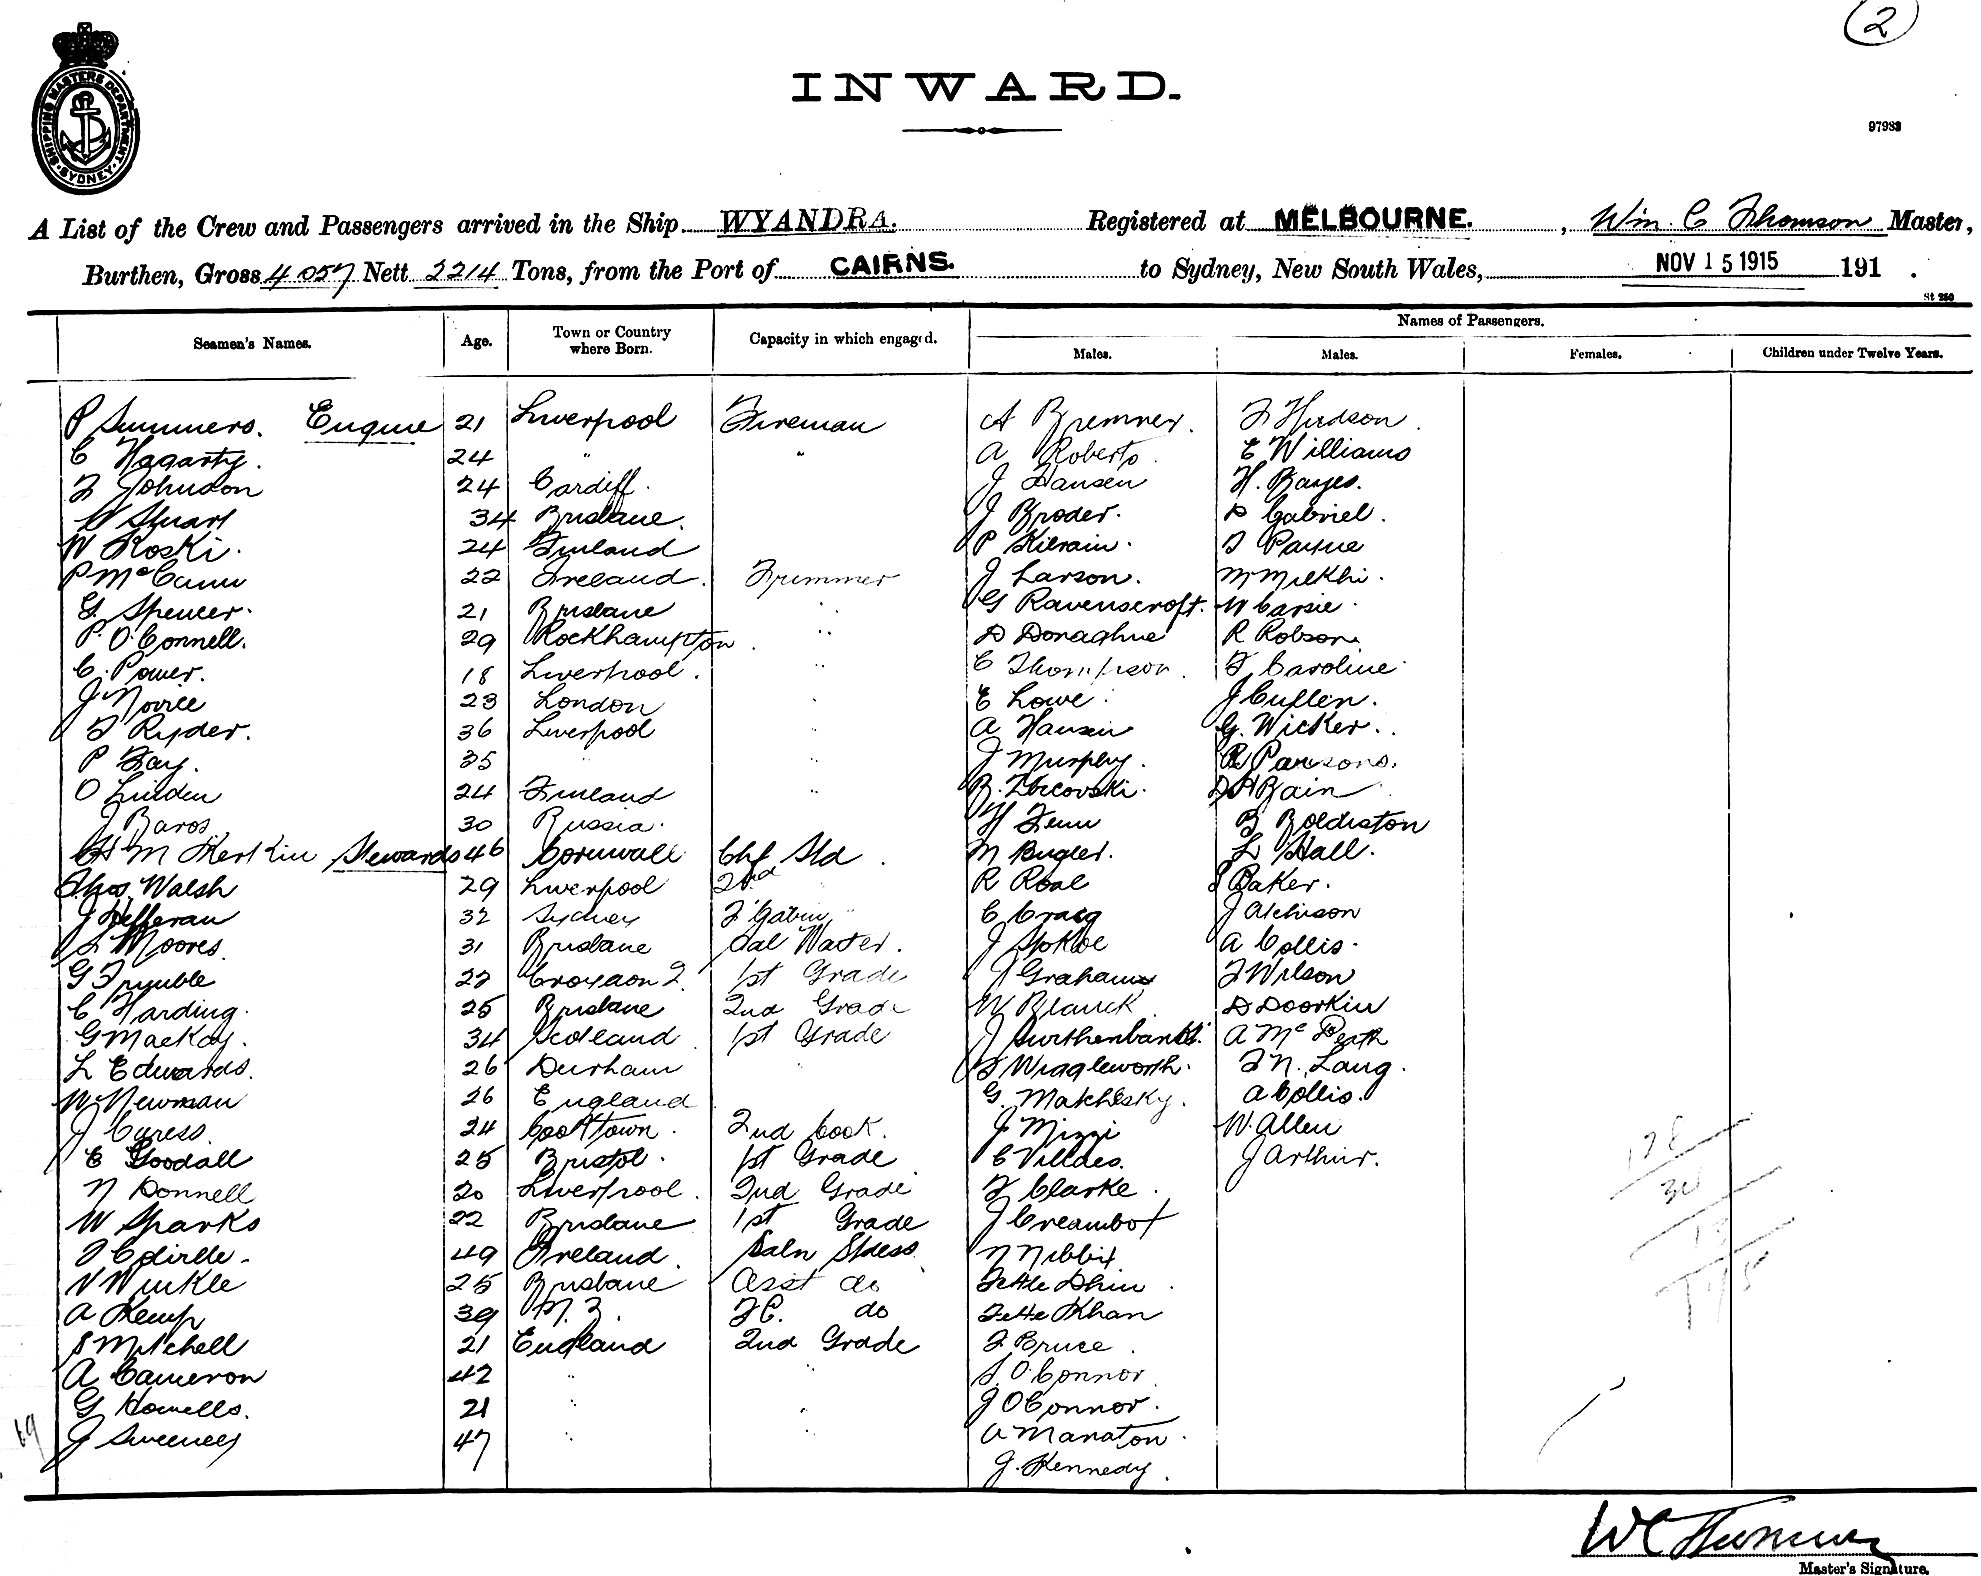 2
SHIPPING MASTERS DEPARTMENT SYDNEY
INWARD.
97983
A List of the Crew and Passengers arrived in the Ship WYANDRA. Registered at MELBOURNE. , Wm. C Thomson Master,
Burthen, Gross 4057 Nett 2214 Tons, from the Port of CAIRNS. to Sydney, New South Wales, NOV 15 1915 191 .
St 250
Names of Passengers.
Seamen's Names. Age. Town or Country where Born. Capacity in which engaged. Males. Males. Females. Children under Twelve Years.
P Summers. Engine 21 Liverpool Fireman A Bremner. F Hudson.
C Hagarty. 24 " " A Roberts. E Williams
F Johnson 24 Cardiff. J Hansen H. Bayes.
W Stuart 34 Brisbane. J Broder. P Gabriel.
W Koski. 24 Finland P Kilrain. T Payne
P McCann 22 Ireland. Trimmer J Larson. M
G Spencer. 21 Brisbane " G Ravenscroft. W Carsie.
P. O'Connell. 29 Rockhampton " D Donaghue R Robson.
C. Power. 18 Liverpool. " C Thompson. F Caroline
J Novice 23 London " E Lowe. J Cullen.
T Ryder. 36 Liverpool " A Hansen G. Wicker.
P Fay. 35 " " J Murphy. R Parsons.
O Linden 24 Finland " B. D A Bain
J Baros 30 Russia. H Fenn B Boldiston
M Stewards 46 Cornwall Chf Std. M Bugler. L Hall.
Thos. Walsh 29 Liverpool 2nd R Roal S Baker.
J Hefferan 32 Sydney F Cabin " C Craig J Atchison
S Moores 31 Brisbane Sal Waiter. J A Collis.
G Trymble 22 Croydon Q. 1st Grade J Graham F Wilson
C Harding. 25 Brisbane 2nd Grade W Blanck D Doorkin
G Mackay. 34 Scotland 1st Grade J A Mc
L Edwards. 26 Durham " T Wiggleworth. F N. Lang.
W Newman 26 England G. A Collis.
J Curess. 24 Cooktown. 2nd Cook. J Mizzi W. Allen
E Goodall 25 Bristol. 1st Grade C Villdes. J Arthur.
N Donnell 20 Liverpool. 2nd Grade F Clarke.
W Sparks 22 Brisbane 1st Grade J
49 Ireland. Saln Stdess. N Nibbit
V Winkle 25 Brisbane Asst do Fette Dhin
A Kemp 39 N. Z. F C. do Fette Khan
S Mitchell 21 England 2nd Grade F Bruce.
A Cameron 42 " " S. O'Connor
G Howells. 21 " " J O'Connor.
69 J Sweeney 47 " " A Manaton.
J. Kennedy.
Master's Signature.